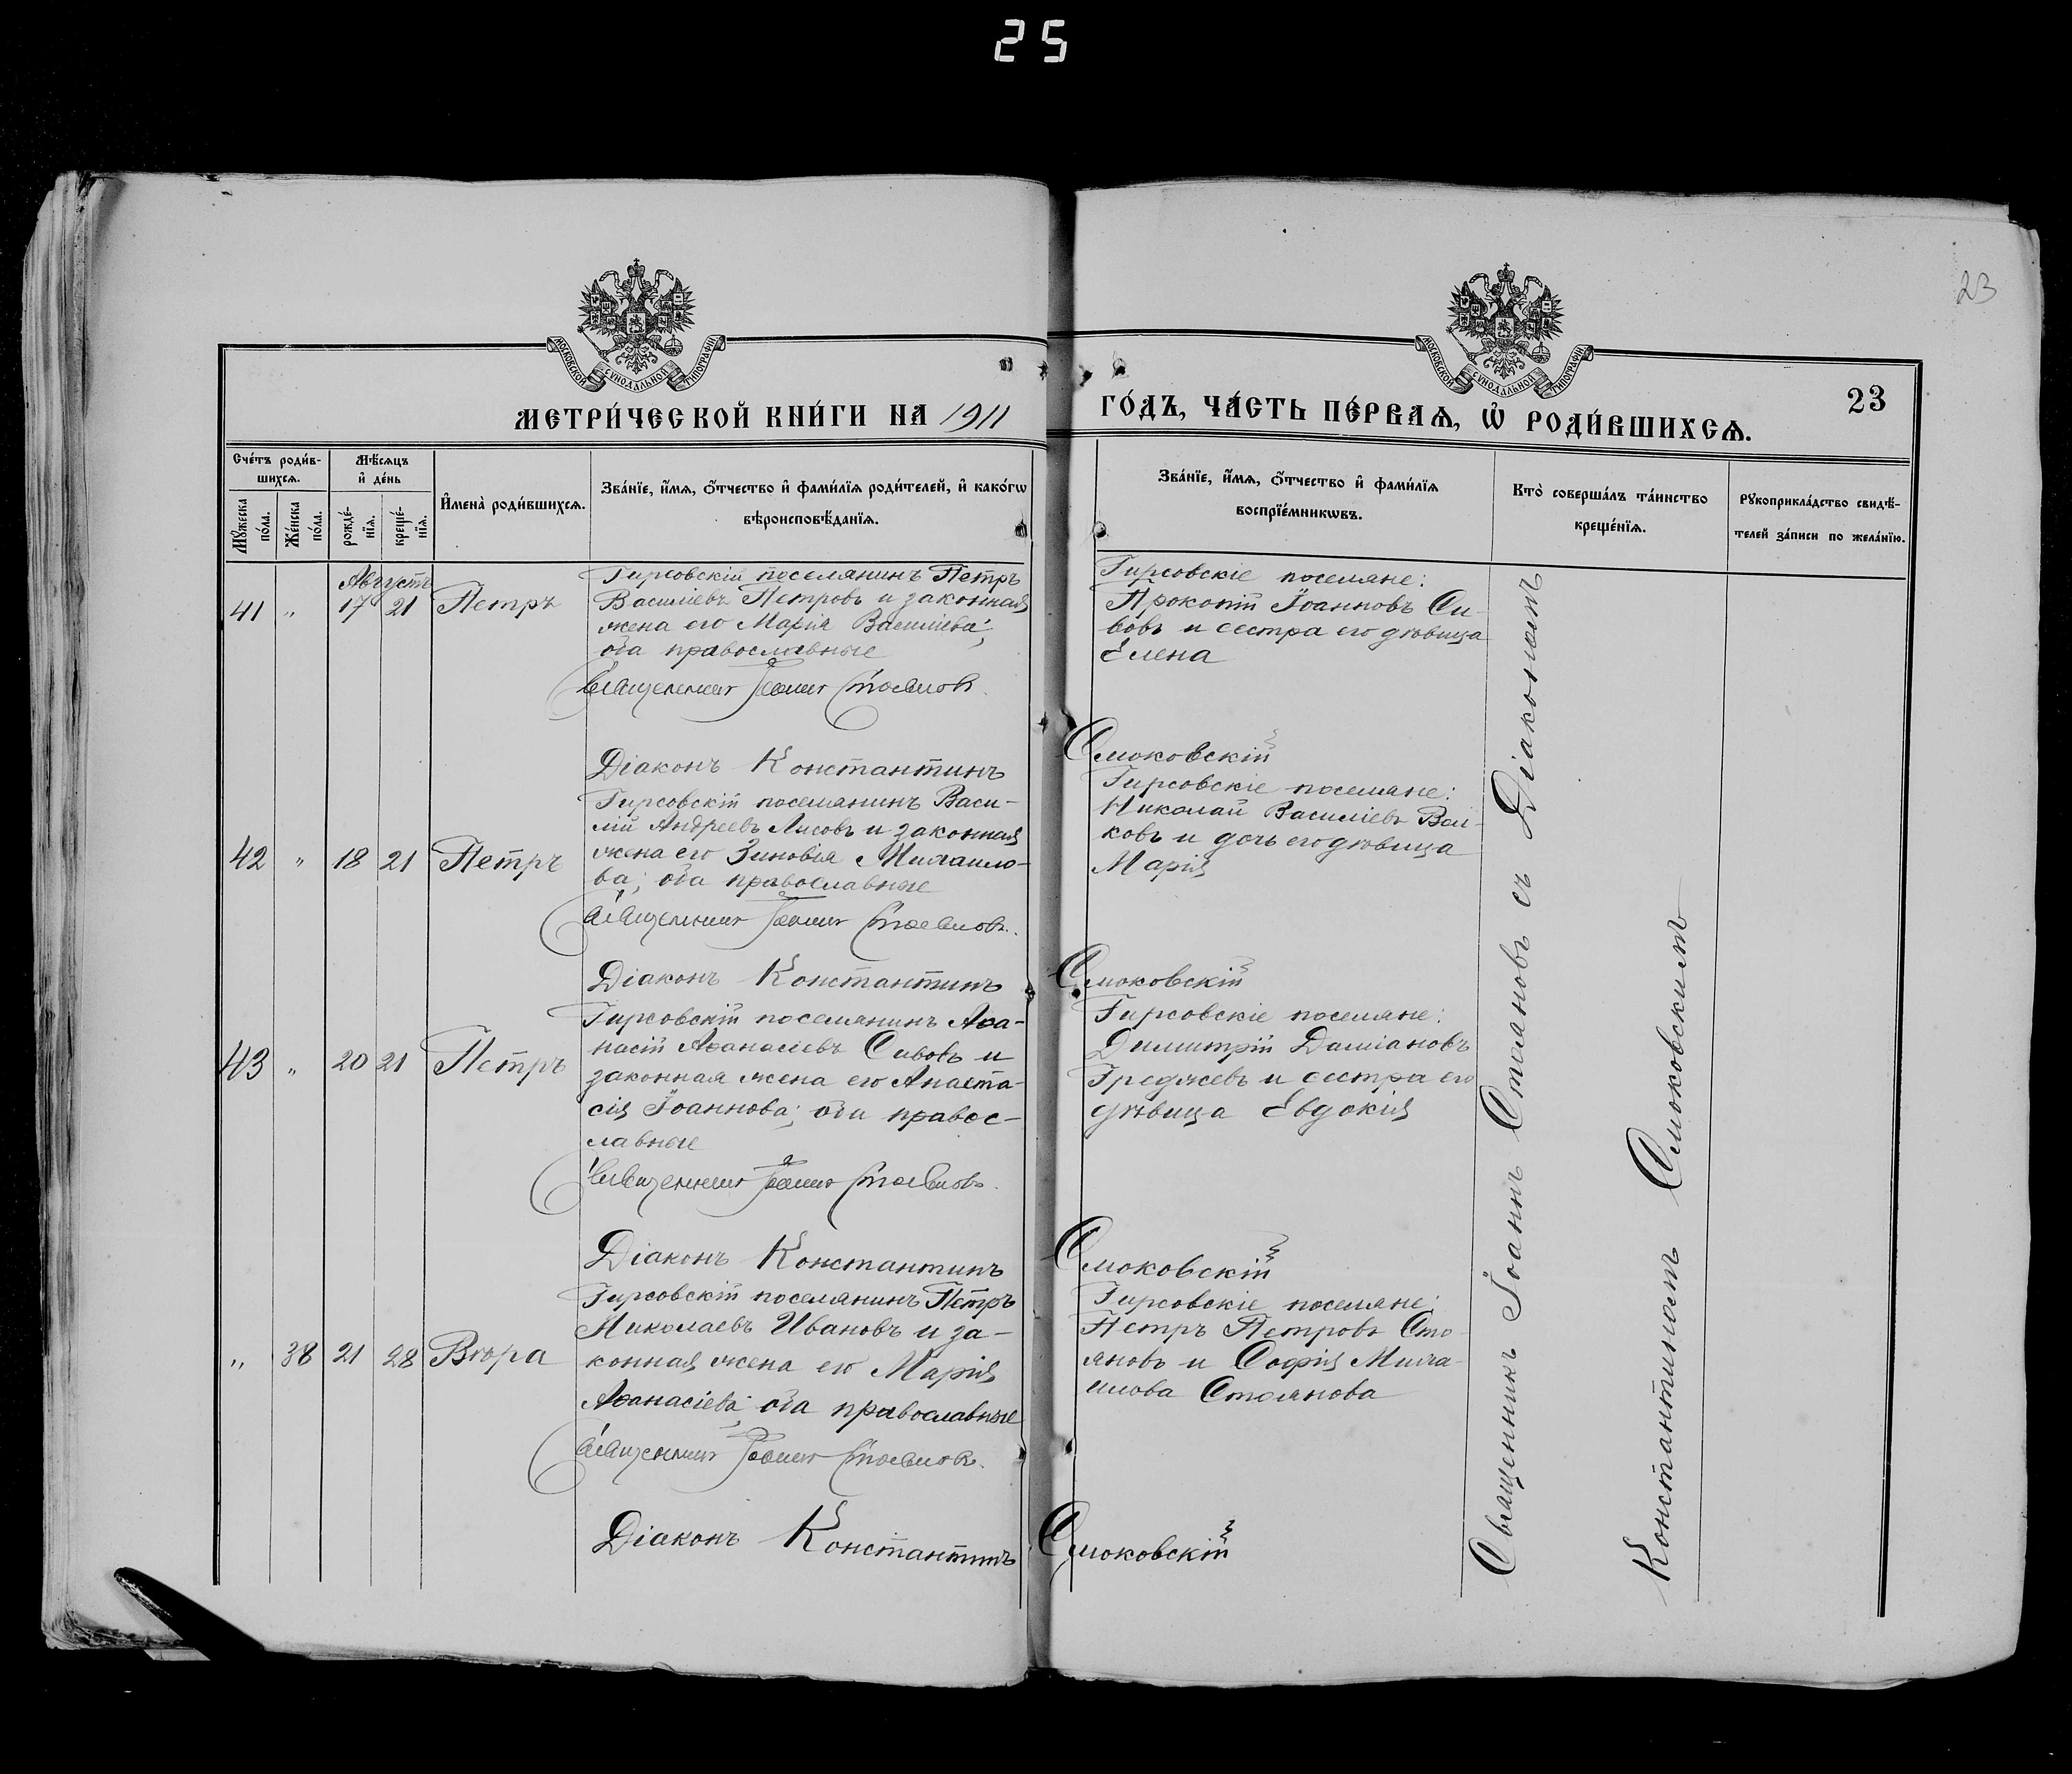 25
23
МОСКОВСКОЙ СѴНОДАЛЬНОЙ ТИПОГРАФІИ
МОСКОВСКОЙ СѴНОДАЛЬНОЙ ТИПОГРАФІИ
МЕТРИ́ЧЕСКОЙ КНИ́ГИ НА 1911
ГО́ДЪ, ЧА́СТЬ ПЕ́РВАѦ, Ѡ҆ РОДИ́ВШИХСѦ.
23
Сче́тъ роди́в-
шихсѧ.
Мѣ́сѧцъ
и҆ де́нь
Мꙋ́жеска
по́ла.
Же́нска
по́ла.
рожде́-
нїѧ.
креще́-
нїѧ.
И҆мена̀ роди́вшихсѧ.
Зва́нїе, и҆́мѧ, ѻ҆́тчество и҆ фами́лїѧ роди́телей, и҆ како́гѡ
вѣроисповѣ́данїѧ.
Зва́нїе, и҆́мѧ, ѻ҆́тчество и҆ фами́лїѧ
воспрїе́мникѡвъ.
Кто̀ соверша́лъ та́инство
креще́нїѧ.
Рꙋкоприкла́дство свидѣ́-
телей за́писи по жела́нїю.
Августъ
41 " 17 21 Петръ
Гирсовскій поселянинъ Петръ
Василіевъ Петровъ и законная
жена его Марія Василіева;
оба православные
Священникъ Іоаннъ Стояновъ.
Діаконъ Константинъ Смоковскій
Гирсовскіе поселяне:
Прокопій Іоанновъ Си-
вовъ и сестра его дѣвица
Елена
42 " 18 21 Петръ
Гирсовскій поселянинъ Васи-
лій Андреевъ Лисовъ и законная
жена его Зиновія Михаило-
ва; оба православные
Священникъ Іоаннъ Стояновъ.
Діаконъ Константинъ Смоковскій
Гирсовскіе поселяне:
Николай Василіевъ Вол-
ковъ и дочь его дѣвица
Марія
43 " 20 21 Петръ
Гирсовскій поселянинъ Аѳа-
насій Аѳанасіевъ Сивовъ и
законная жена его Анаста-
сія Іоаннова; оба правос-
лавные
Священникъ Іоаннъ Стояновъ.
Діаконъ Константинъ Смоковскій
Гирсовскіе поселяне:
Димитрій Даміановъ
Греджевъ и сестра его
дѣвица Евдокія
" 38 21 28 Вѣра
Гирсовскій поселянинъ Петръ
Николаевъ Ивановъ и за-
конная жена его Марія
Аѳанасіева; оба православные
Священникъ Іоаннъ Стояновъ.
Діаконъ Константинъ Смоковскій
Гирсовскіе поселяне:
Петръ Петровъ Сто-
яновъ и Софія Миха-
илова Стоянова
Священникъ Іоаннъ Стояновъ съ Діакономъ
Константиномъ Смоковскимъ